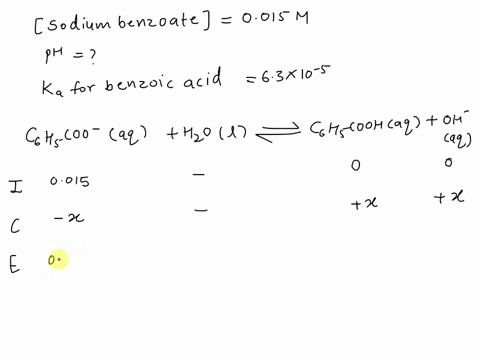 [Sodium benzoate] = 0.015 M
pH = ?
Ka for benzoic acid = 6.3×10⁻⁵
C₆H₅COO⁻ (aq) + H₂O (l) ⇌ C₆H₅COOH (aq) + OH⁻ (aq)
I 0.015 – 0 0
C -x – +x +x
E 0.